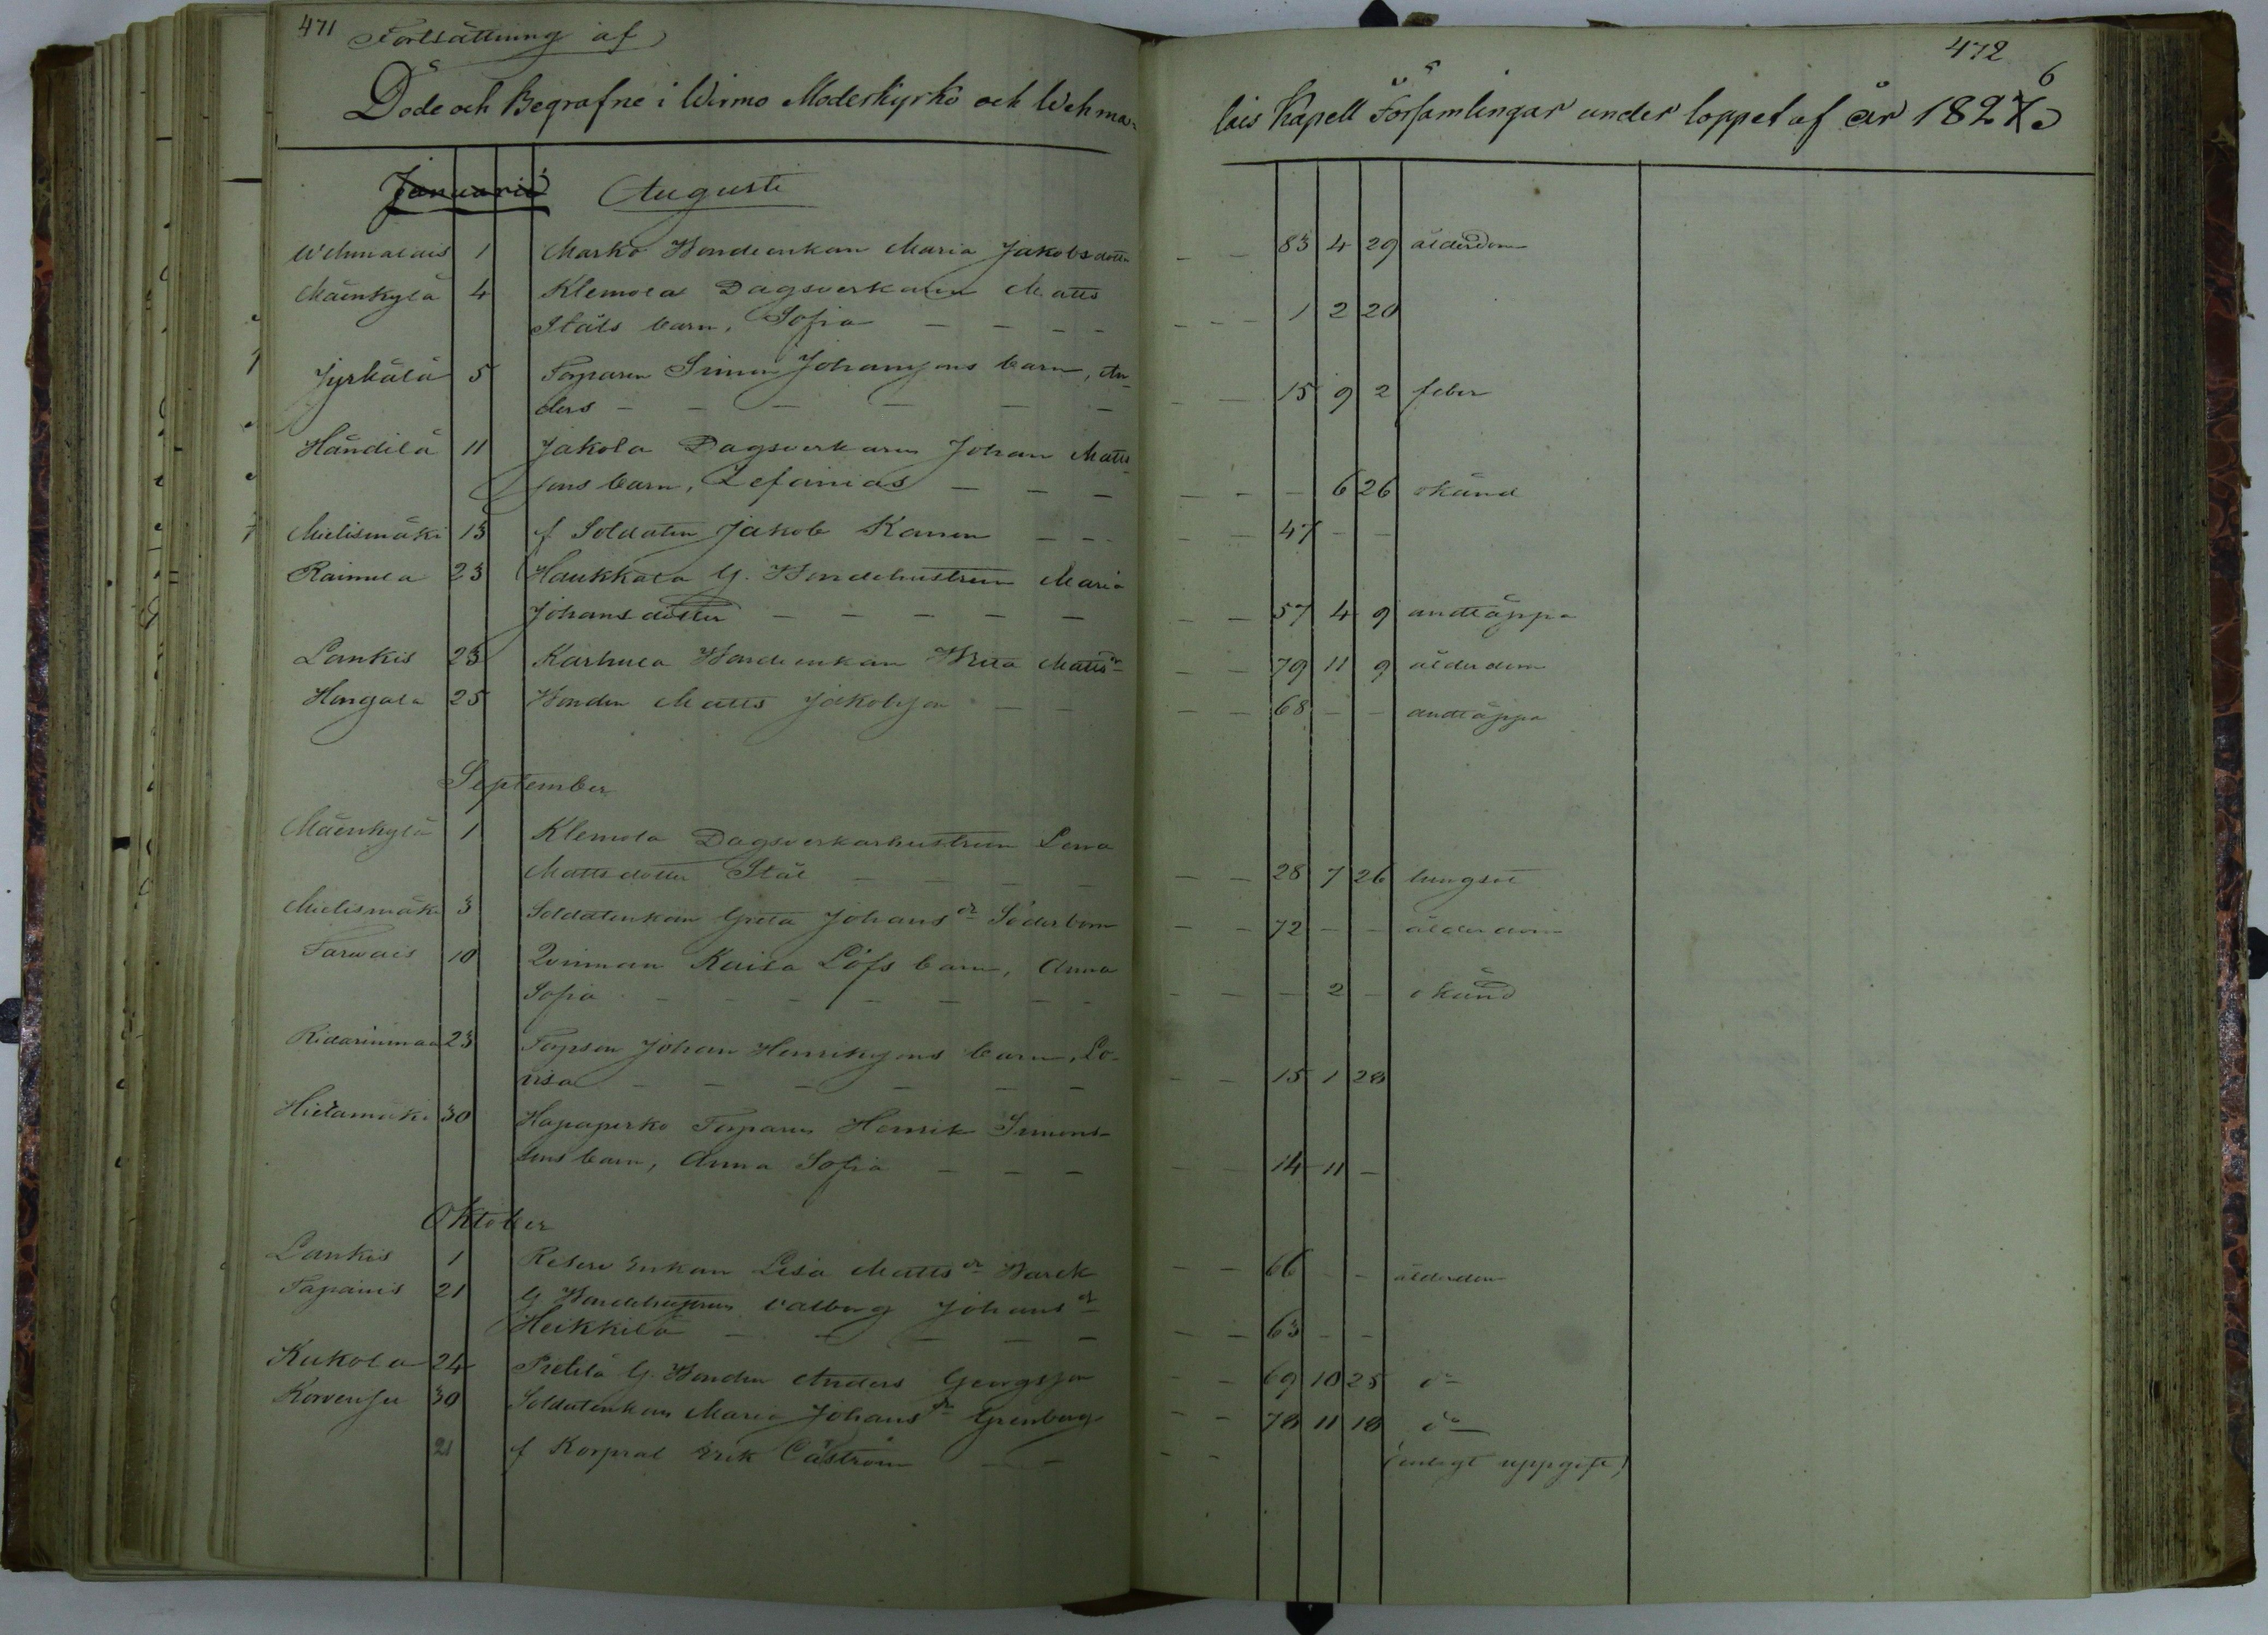 471 Fortsättning af
472
Döde och Begrafne i Wirmo Moderkyrko och Wehma-
lais Kapell Församlingar under loppet af år 1826
Januarii Augusti
Wehmalais 1 Marko Bondeenkan Maria Jakobsdotter — — 83 4 29 ålderdom
Mäenkylä 4 Klemola Dagsverkaren Matts
Ståls barn, Sofia — — — — 1 2 20
Jyrkälä 5 Torparen Simon Johanssons barn, An-
ders — — — — — — 15 9 2 feber
Händilä 11 Jakola Dagsverkaren Johan Matts-
sons barn, Zefanias — — — — — — 6 26 okänd
Mielismäki 13 f Soldaten Jakob Kanen — — — — 47 — —
Raimela 23 Haukkala G. Bondehustrun Maria
Johansdotter — — — — — — — 57 4 9 andtäppa
Lankis 23 Karhula Bondeenkan Brita Mattsdr — — 79 11 9 ålderdom
Hongala 25 Bonden Matts Jakobsson — — — — 68 — — andtäppa
September
Mäenkylä 1 Klemola Dagsverkarhustrun Lena
Mattsdotter Stål — — — — — — 28 7 26 lungsot
Mielismäki 3 Soldatenkan Greta Johansdr Söderbom — — 72 — — ålderdom
Tarwais 10 Qvinnan Kaisa Löfs barn, Anna
Sofia — — — — — — — — — — 2 — okänd
Ridarinmaa 23 Torpson Johan Henrikssons barn, Lo-
visa — — — — — — — — 15 1 28
Hietamäki 30 Hapaperko Torparen Henrik Simons-
sons barn, Anna Sofia — — — — — 14 11 —
Oktober
Lankis 1 Reserv Enkan Lisa Mattsdr Varck — — 66 — — ålderdom
Tapainis 21 G Bondehustrun Valborg Johansdr
Heikkilä — — — — — — — 63 — —
Kukola 24 Pietilä G. Bonden Anders Georgsson — — 69 10 25 do
Korvensu 30 Soldatenkan Maria Johansdr Grenberg — — 78 11 18 do
21 f Korpral Erik Cåström — — — — (enligt uppgift)